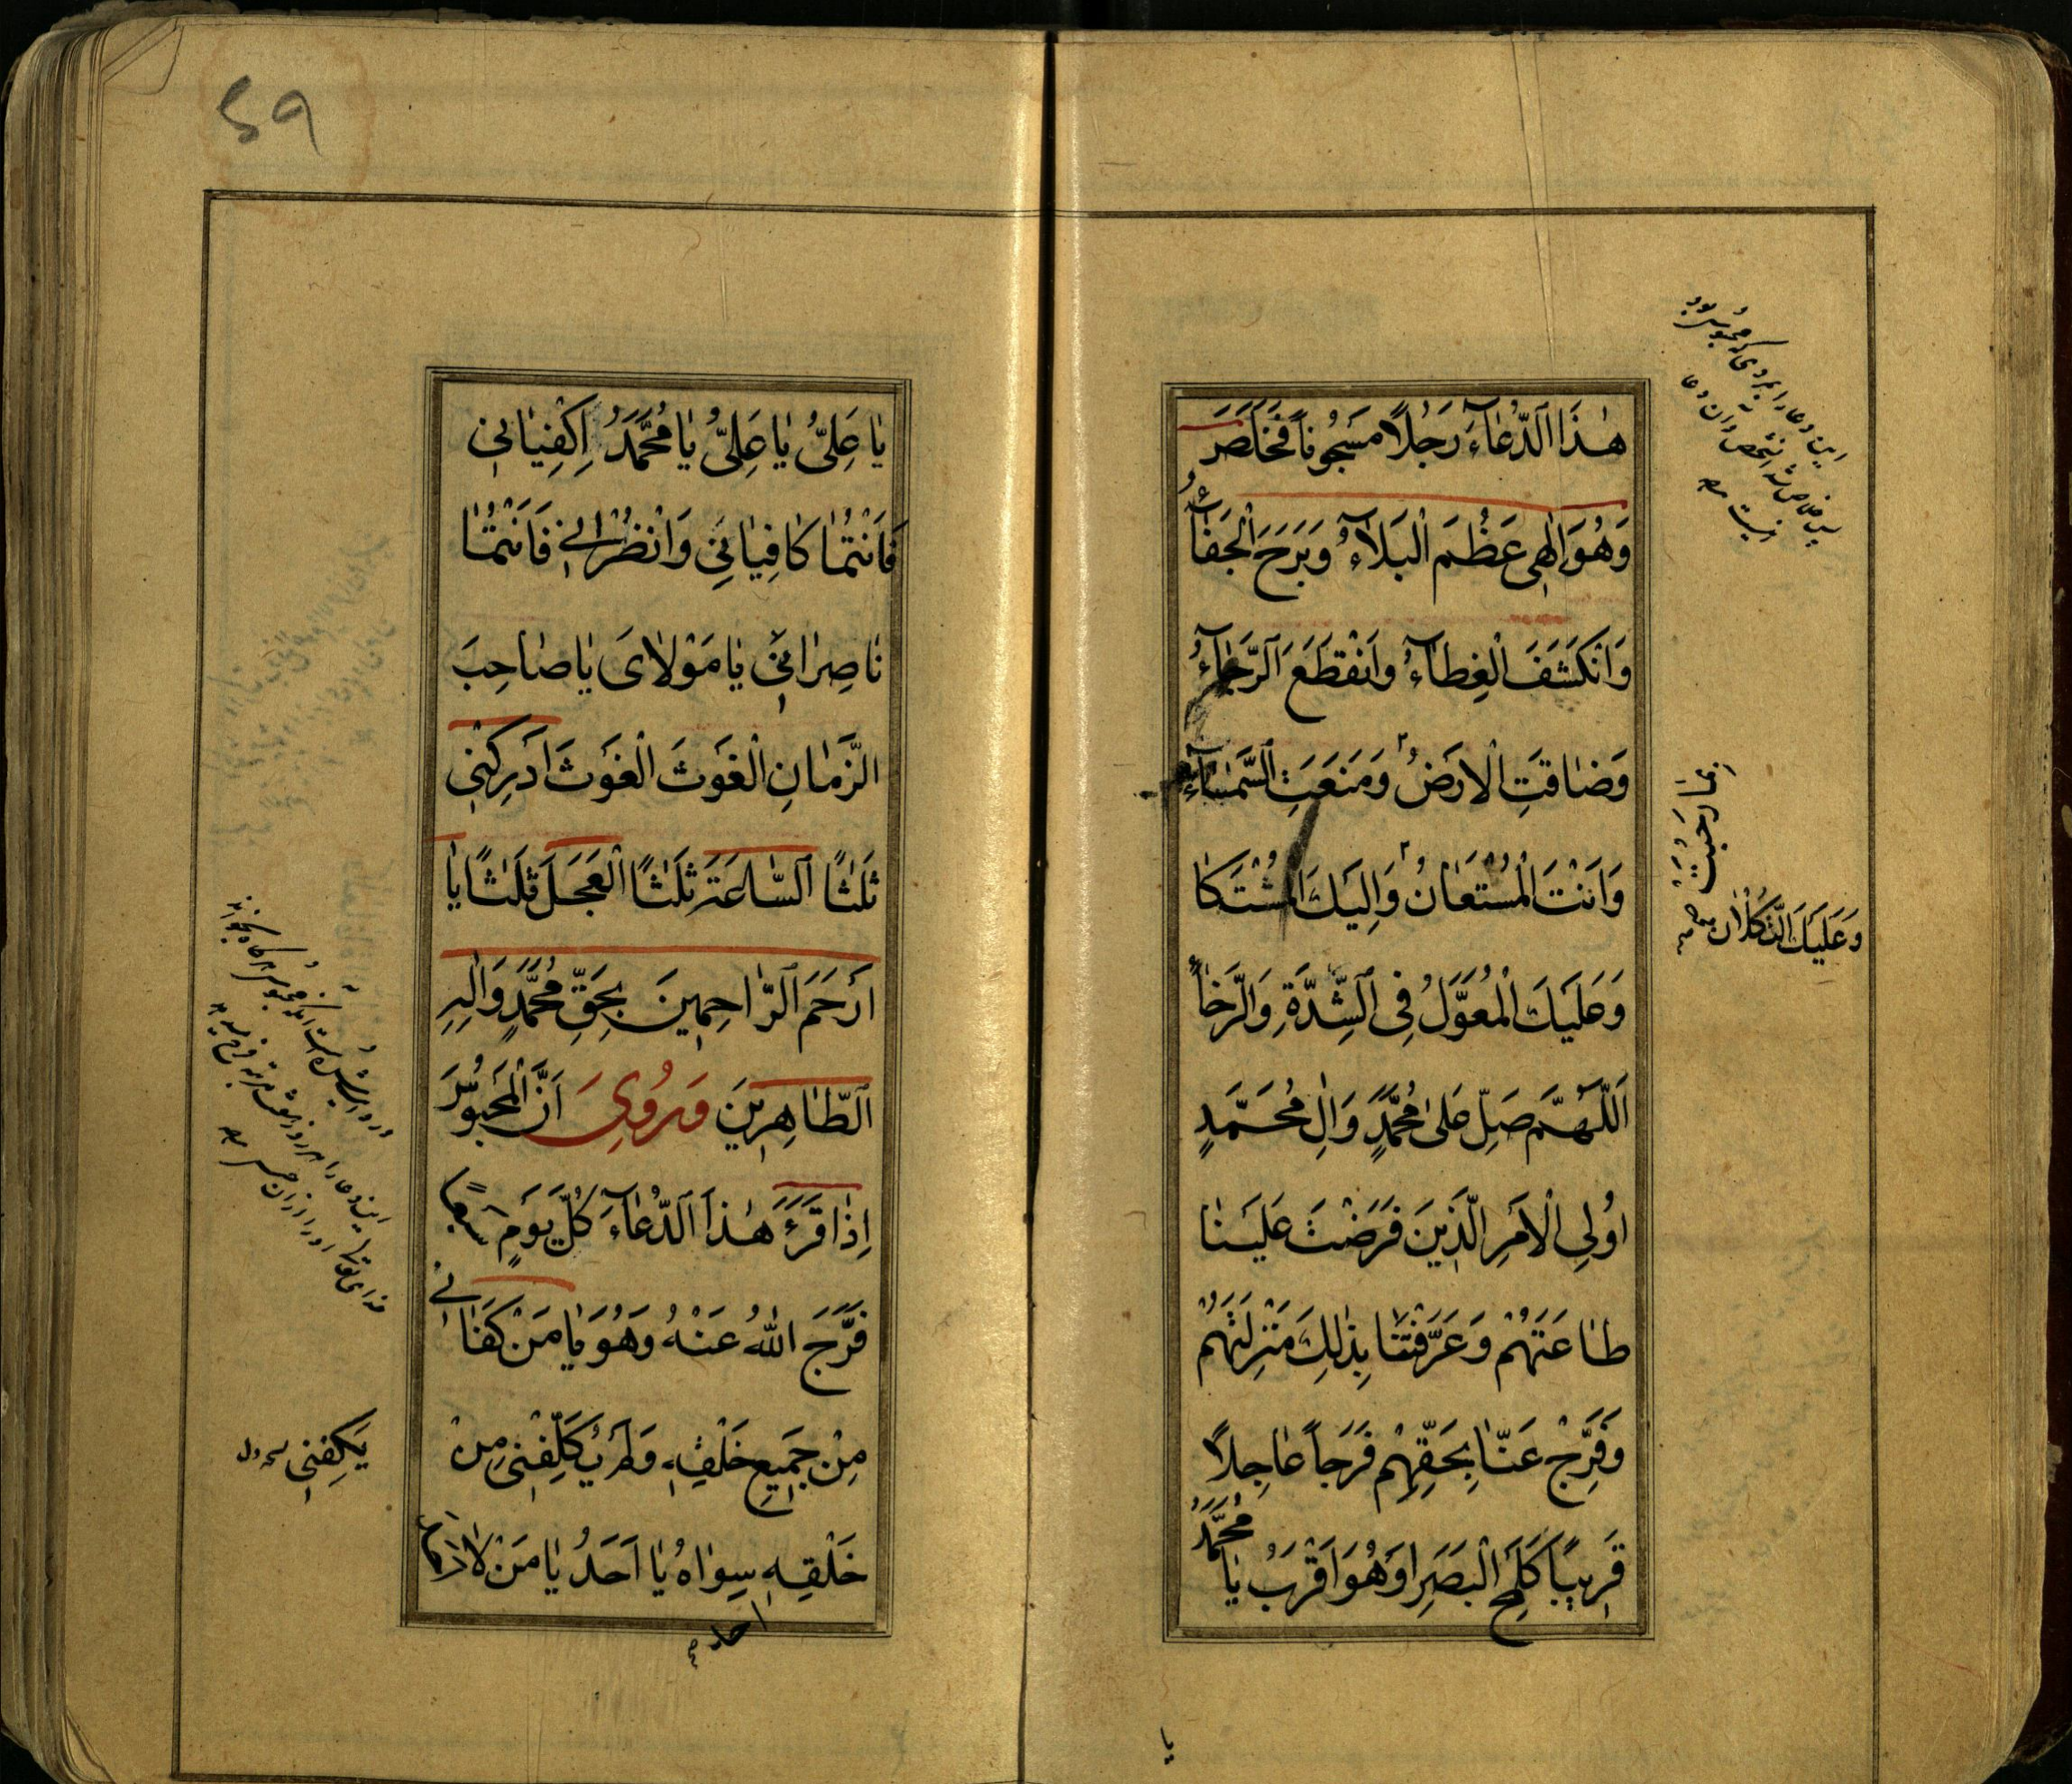 هٰذَا الدُّعَاۤءَ رَجُلًا مَسْجُونًا فَخَلَصَ
وَهُوَ اِلٰهِى عَظُمَ الْبَلَاۤءُ وَبَرَحَ الْخَفَاۤءُ
وَانْكَشَفَ الْغِطَاۤءُ وَانْقَطَعَ الرَّجَاۤءُ
وَضَاقَتِ الْاَرْضُ وَمَنَعَتِ السَّمَاۤءُ
وَاَنْتَ الْمُسْتَعَانُ وَاِلَيْكَ الْمُشْتَكَا
وَعَلَيْكَ الْمُعَوَّلُ فِى الشِّدَّةِ وَالرَّخَاۤءِ
اَللّٰهُمَّ صَلِّ عَلٰى مُحَمَّدٍ وَاٰلِ مُحَمَّدٍ
اُولِى الْاَمْرِ الَّذِينَ فَرَضْتَ عَلَيْنَا
طَاعَتَهُمْ وَعَرَّفْتَنَا بِذٰلِكَ مَنْزِلَتَهُمْ
وَفَرِّجْ عَنَّا بِحَقِّهِمْ فَرَجًا عَاجِلًا
قَرِيبًا كَلَمْحِ الْبَصَرِ اَوْ هُوَ اَقْرَبُ يَا مُحَمَّدُ
بما رَحُبَت
وَعَلَيْكَ التُّكْلَان
يا
59
يَا عَلِىُّ يَا عَلِىُّ يَا مُحَمَّدُ اِكْفِيَانِى
فَاَنْتُمَا كَافِيَانِى وَانْظُرَانِى فَاَنْتُمَا
نَاصِرَانِى يَا مَوْلَاىَ يَا صَاحِبَ
الزَّمَانِ الْغَوْثَ الْغَوْثَ اَدْرِكْنِى
ثَلٰثًا السَّاعَةَ ثَلٰثًا الْعَجَلَ ثَلٰثًا يَا
اَرْحَمَ الرَّاحِمِينَ بِحَقِّ مُحَمَّدٍ وَاٰلِهِ
الطَّاهِرِينَ وَرُوِىَ اَنَّ الْمَحْبُوسَ
اِذَا قَرَءَ هٰذَا الدُّعَاۤءَ كُلَّ يَوْمٍ سَبْعًا
فَرَّجَ اللّٰهُ عَنْهُ وَهُوَ يَا مَنْ كَفَانِى
مِنْ جَمِيعِ خَلْقِهِ وَلَمْ يُكَلِّفْنِى مِنْ
خَلْقِهِ سِوَاهُ يَا اَحَدُ يَا مَنْ لَا
يَكْفِنِى
احد